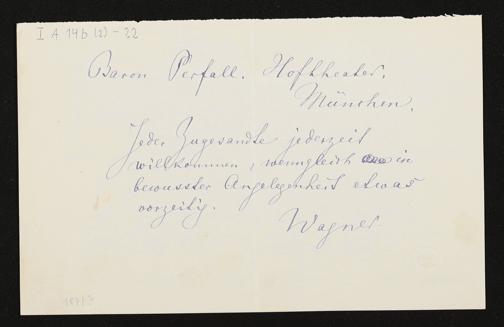 I A 14b (2) - 22
Baron Perfall. Hoftheater.
München.
Jeder Zugesandte jederzeit
willkommen, wenngleich in
bewusster Angelegenheit etwas
vorzeitig.
Wagner.